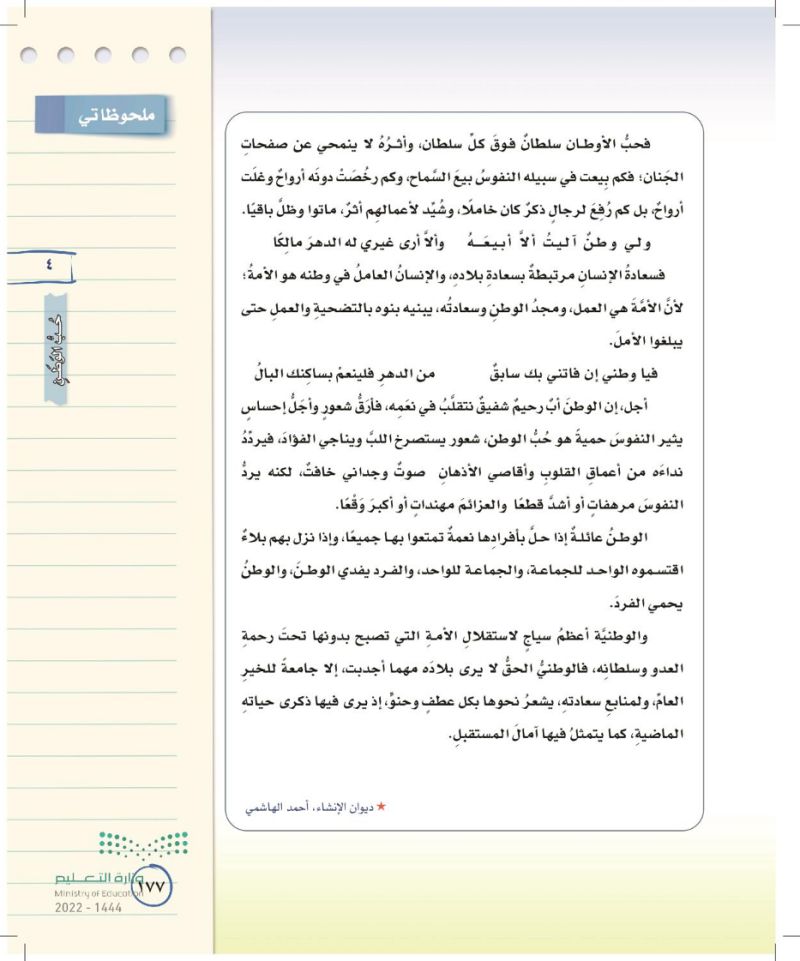 ملحوظاتي
فحبُّ الأوطـان سلطانٌ فوقَ كلِّ سلطان، وأثـرُهُ لا ينمحي عن صفحاتِ
الجَنان؛ فكم بِيعت في سبيله النفوسُ بيعَ السَّماح، وكم رخُصَتْ دونَه أرواحٌ وغلَت
أرواحٌ، بل كم رُفِعَ لرجالٍ ذكرٌ كان خاملًا، وشُيِّد لأعمالهم أثرٌ، ماتوا وظلَّ باقيًا.
ولي وطنٌ آليتُ ألاَّ أبيعَـهُ وألاَّ أرى غيري له الدهرَ مالِكًا
فسعادةُ الإنسانِ مرتبطةٌ بسعادةِ بلادِه، والإنسانُ العاملُ في وطنه هو الأمةُ؛
لأنَّ الأمَّةَ هي العمل، ومجدُ الوطنِ وسعادتُه، يبنيه بنوه بالتضحيةِ والعملِ حتى
يبلغوا الأملَ.
فيا وطني إن فاتني بك سابقٌ من الدهرِ فلينعمْ بساكِنك البالُ
أجل، إن الوطنَ أبٌ رحيمٌ شفيقٌ نتقلَّبُ في نعَمِه، فأرَقُّ شعورٍ وأجَلُّ إحساسٍ
يثير النفوسَ حميةً هو حُبُّ الوطن، شعور يستصرخ اللبَّ ويناجي الفؤادَ، فيردِّدُ
نداءَه من أعماقِ القلوبِ وأقاصي الأذهانِ صوتٌ وجداني خافتٌ، لكنه يردُّ
النفوسَ مرهفاتٍ أو أشدَّ قطعًا والعزائمَ مهنداتٍ أو أكبرَ وَقْعًا.
الوطنُ عائلةٌ إذا حلَّ بأفرادِها نعمةٌ تمتعوا بها جميعًا، وإذا نزل بهم بلاءٌ
اقتسموه الواحد للجماعة، والجماعة للواحد، والفـرد يفدي الوطنَ، والوطنُ
يحمي الفردَ.
والوطنيَّة أعظمُ سياجٍ لاستقلالِ الأمةِ التي تصبح بدونها تحتَ رحمةِ
العدو وسلطانِه، فالوطنيُّ الحقُّ لا يرى بلادَه مهما أجدبت، إلا جامعةً للخيرِ
العامِّ، ولمنابعِ سعادتهِ، يشعرُ نحوها بكل عطفٍ وحنوٍّ، إذ يرى فيها ذكرى حياتهِ
الماضيةِ، كما يتمثلُ فيها آمالَ المستقبلِ.
★ ديوان الإنشاء، أحمد الهاشمي
٤
حُبُّ الوَطَنِ
وزارة التعـليم
Ministry of Education
2022 - 1444
١٧٧